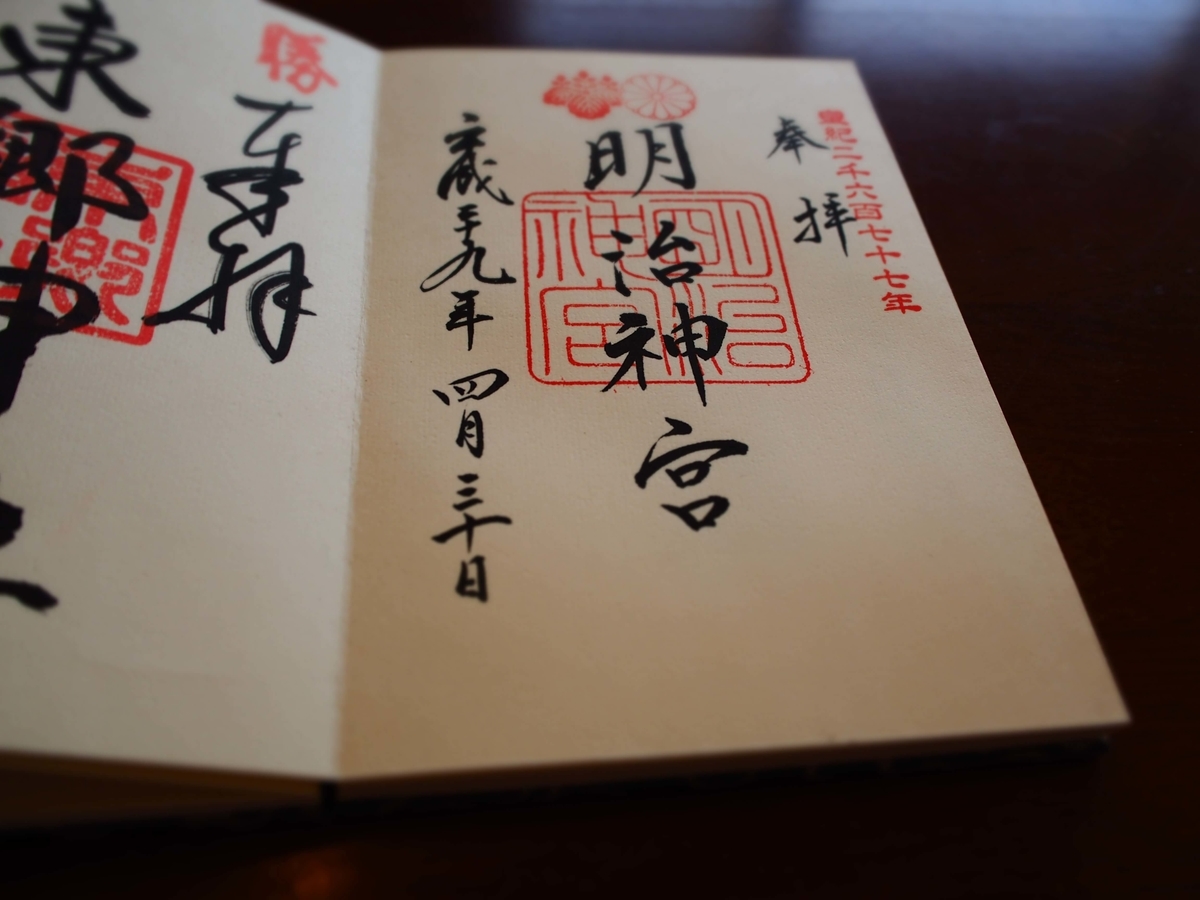 皇紀二千六百七十七年
奉拝
明治神宮
明治
神宮
平成二十九年四月三十日
勝
奉拝
東郷神社